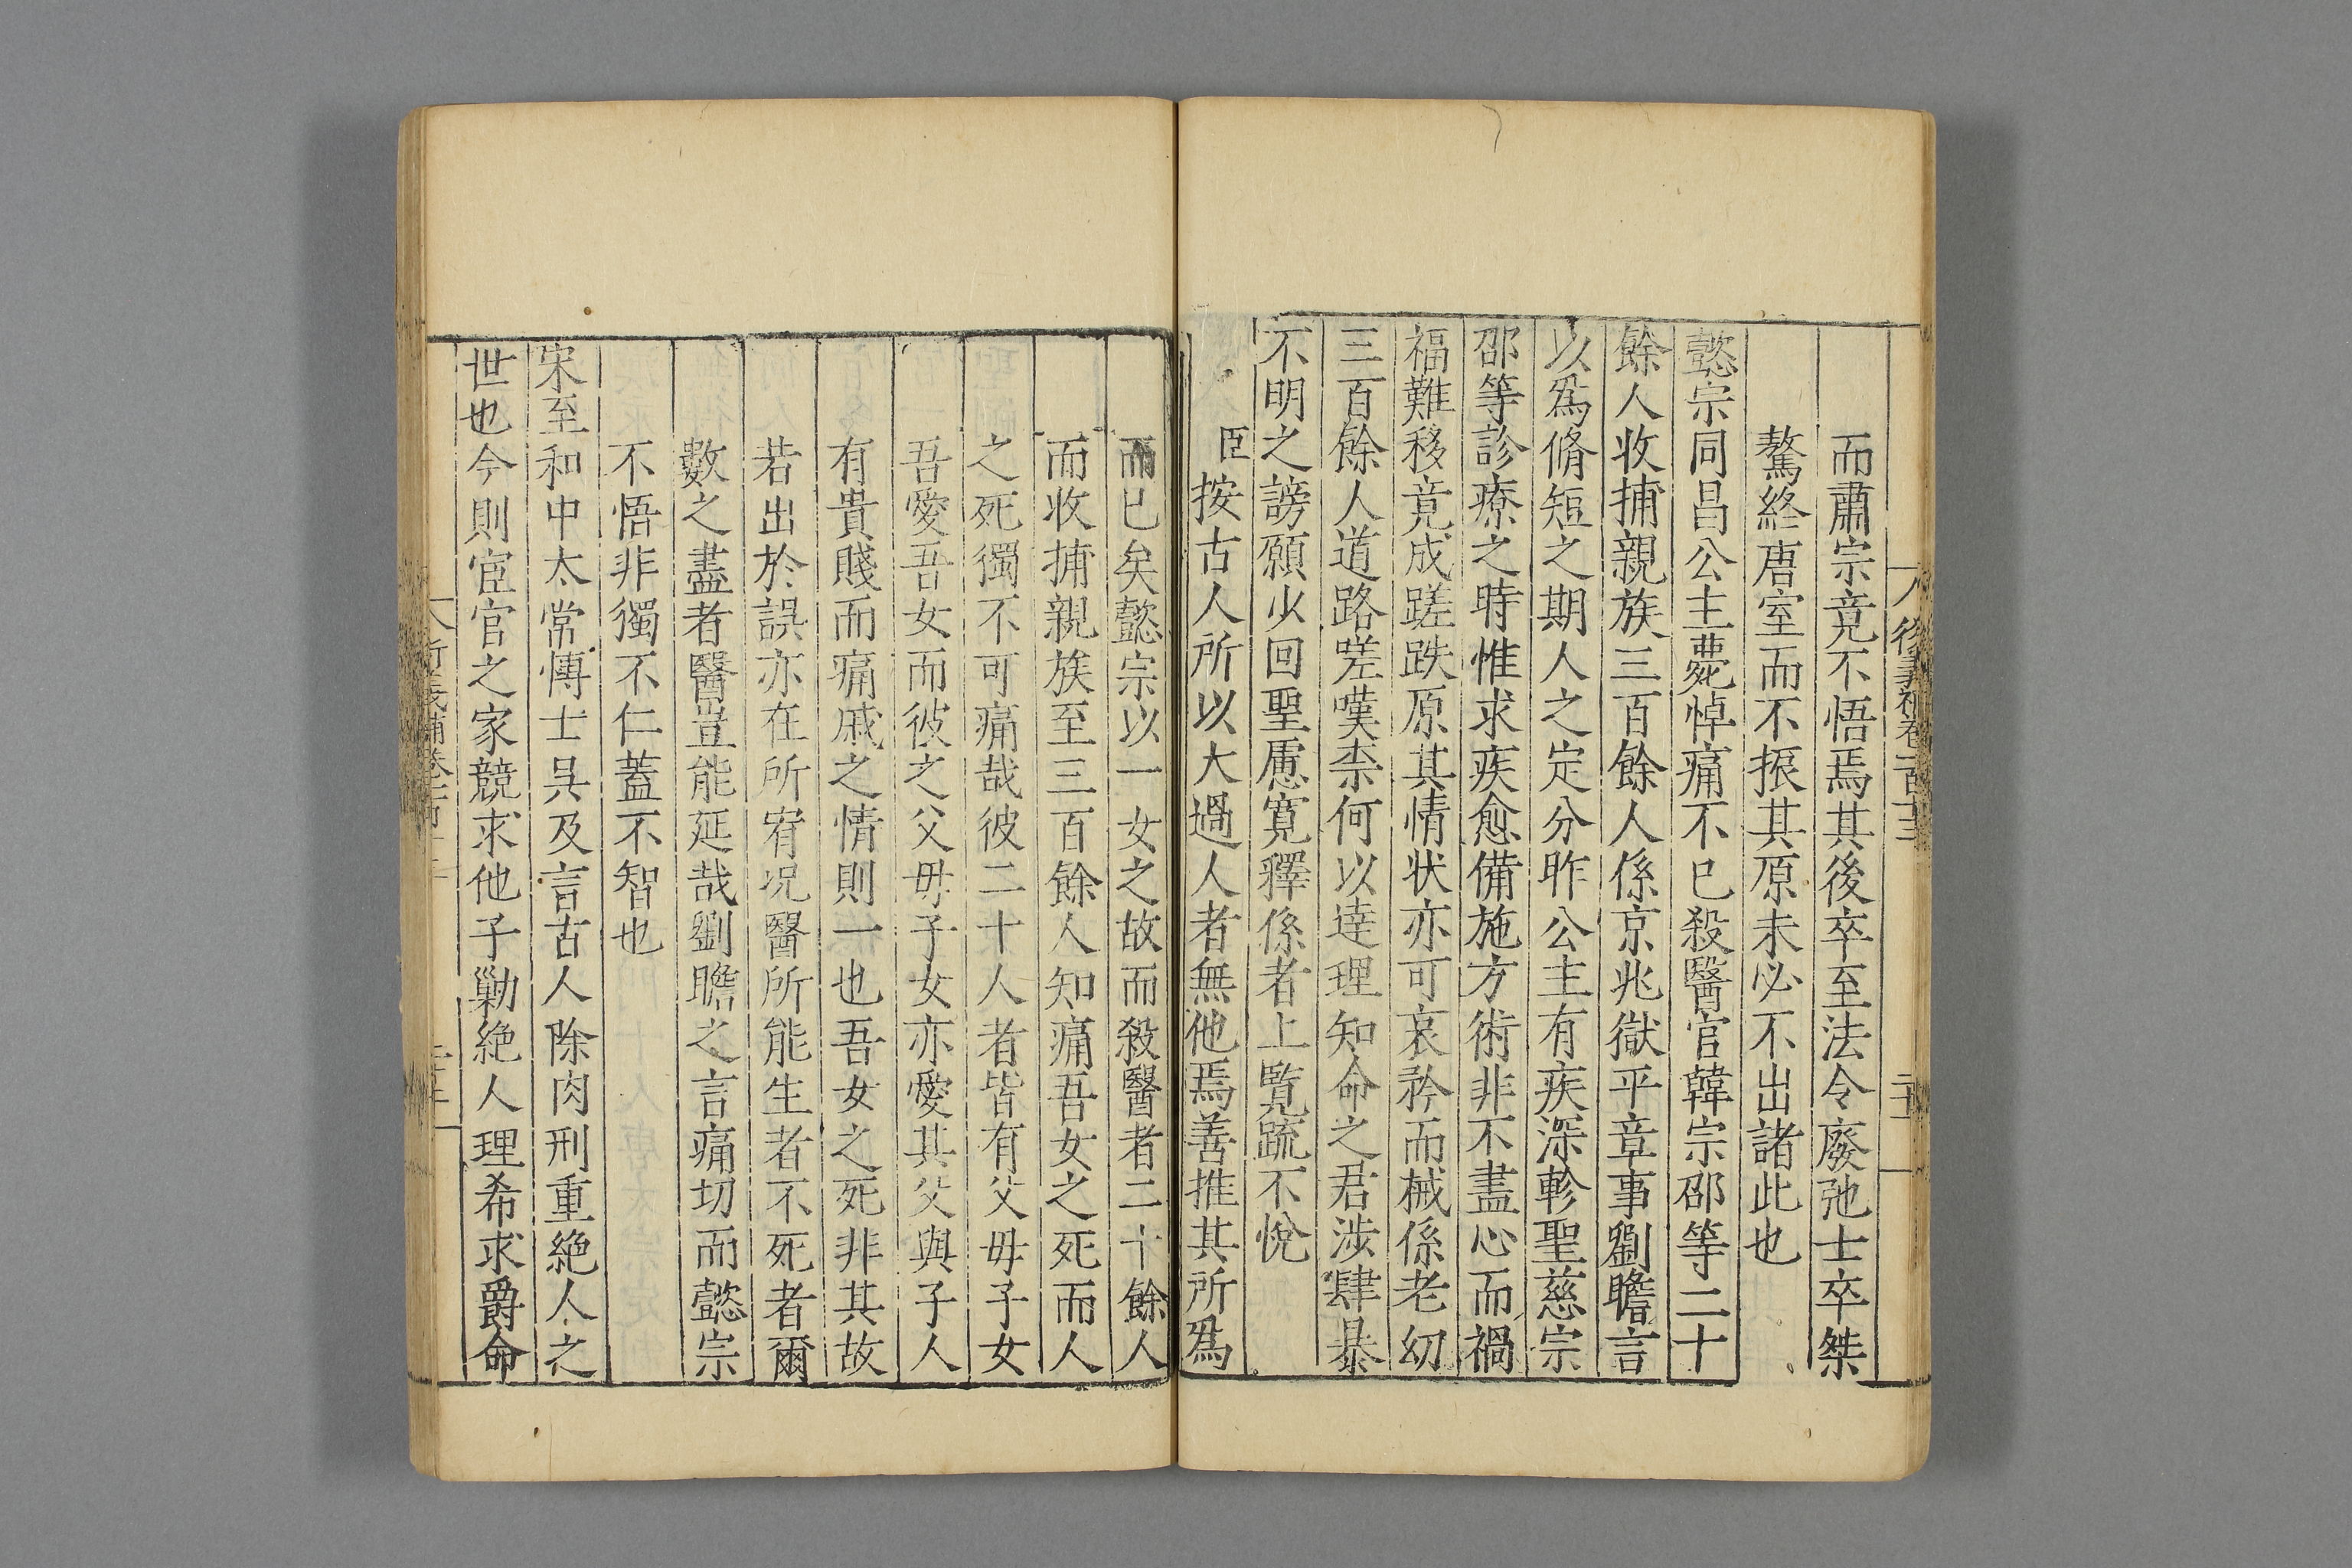 而肅宗竟不悟焉其後卒至法令廢弛士卒桀
驁終唐室而不振其原未必不出諸此也
懿宗同昌公主薨悼痛不已殺醫官韓宗邵等二十
餘人收捕親族三百餘人係京兆獄平章事劉瞻言
以爲脩短之期人之定分昨公主有疾深軫聖慈宗
邵等診療之時惟求疾愈備施方術非不盡心而禍
福難移竟成蹉跌原其情狀亦可哀矜而械係老幼
三百餘人道路嗟嘆柰何以達理知命之君涉肆暴
不明之謗願少回聖慮寬釋係者上覧䟽不悅
臣按古人所以大過人者無他焉善推其所爲
而已矣懿宗以一女之故而殺醫者二十餘人
而收捕親族至三百餘人知痛吾女之死而人
之死獨不可痛哉彼二十人者皆有父毋子女
吾愛吾女而彼之父毋子女亦愛其父與子人
有貴賤而痛戚之情則一也吾女之死非其故
若出於誤亦在所宥况醫所能生者不死者爾
數之盡者醫豈能延哉劉瞻之言痛切而懿宗
不悟非獨不仁蓋不智也
宋至和中太常博士吳及言古人除肉刑重絶人之
世也今則宦官之家競求他子勦絶人理希求爵命